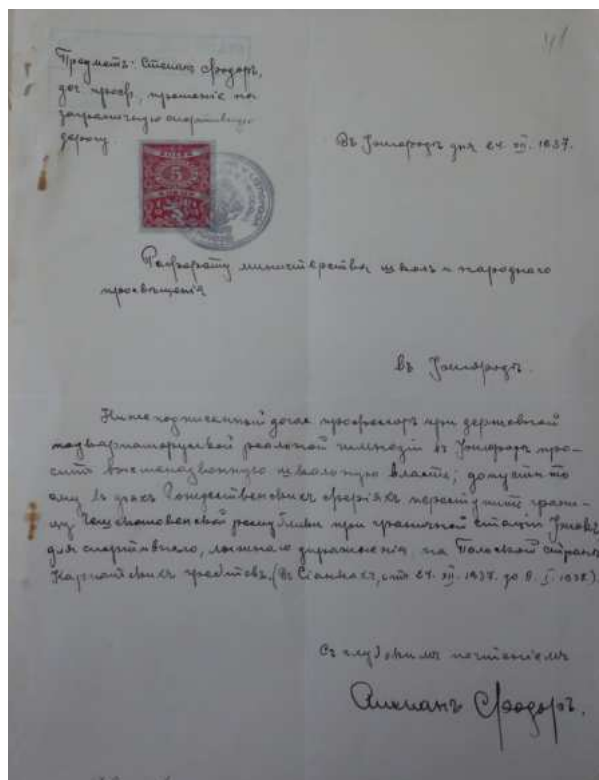 41
Предметъ: Стецакъ Феодоръ,
проф., прошеніе на
заграничную спортивную
дорогу
Въ Ужгородѣ дня 24. XII. 1937.
5
Реферату министерства школъ и народного
просвѣщенія
въ Ужгородѣ.
Нижеподписанный профессоръ при державной
реальной гимназіи въ Ужгородѣ про-
ситъ вышеназванную школьную власть, допустити
ему въ Рождественскихъ феріяхъ переступити грани-
цу Чешсловенской республики при граничной стаціи Ужокъ
для спортивного, лыжного на Польской странѣ
Карпатскихъ хребтовъ. (Въ Сіанкахъ, отъ 24. XII. 1937. до 8. I. 1938.)
Съ глубокимъ почтеніемъ
Феодоръ.